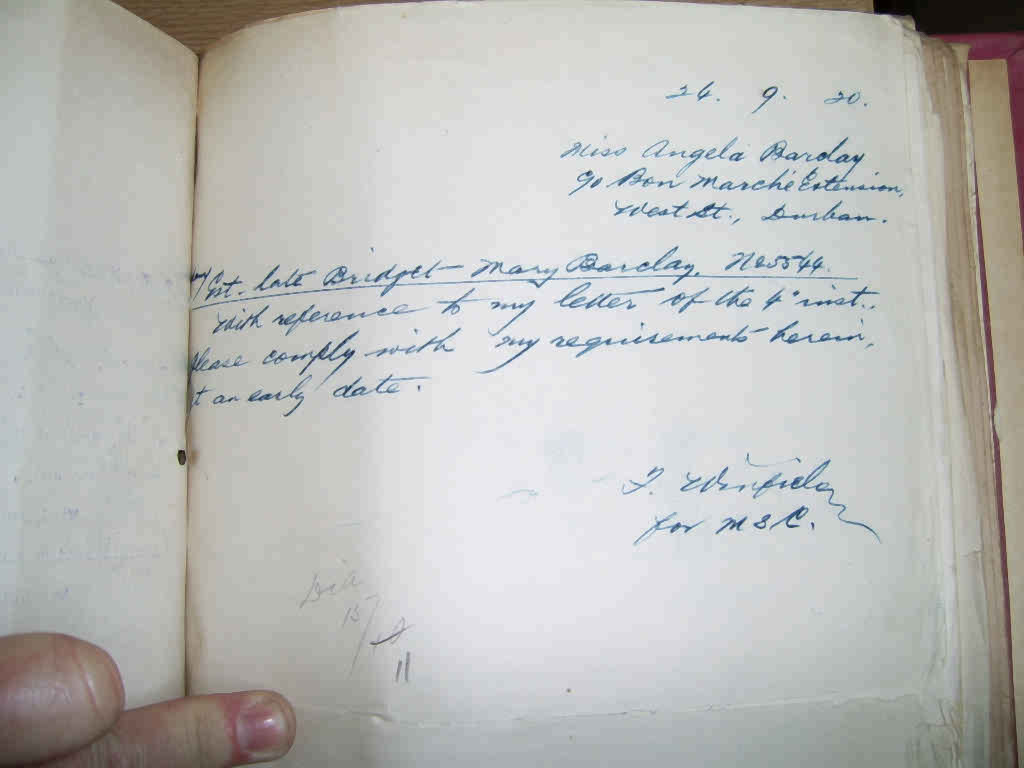 24. 9. 20.
Miss Angela Barclay
c/o Bon Marché Extension,
West St., Durban.
Est. late Bridget Mary Barclay. No 5544.
With reference to my letter of the 4" inst.,
please comply with my requirements herein,
at an early date.
F. Winfield
for M S C.
Dia
15/
11